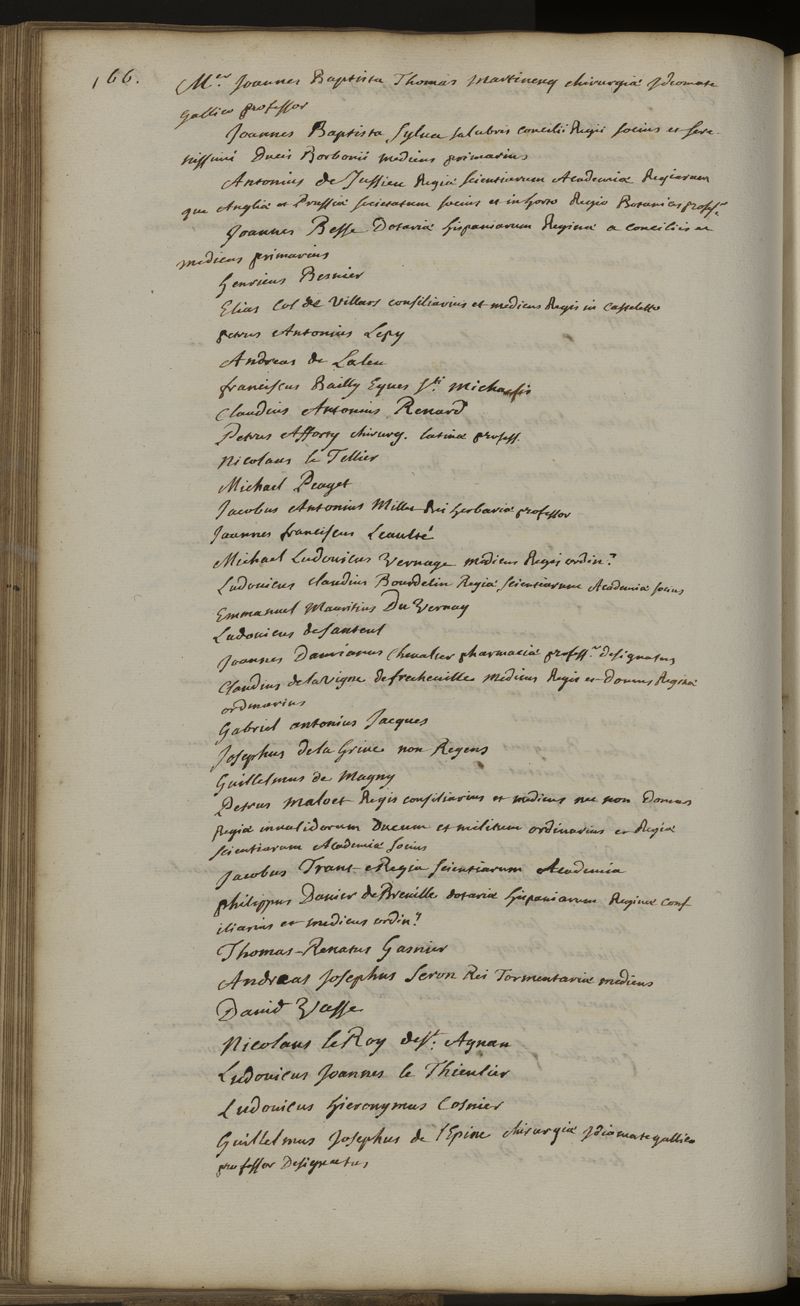 166.
M.er Joannes Baptista Thomas Martinenq chirurgiæ Idiomate
gallico professor
Joannes Baptista Sylva salubris concilii Regii socius et sere-
nissimi Ducis Borbonii medicus primarius
Antonius de Jussieu Regiæ scientiarum Academiæ Regiarum
que Angliæ et Prussiæ societatum socius et in horto Regio Botanices profess.r
Joannes Besse Dotariæ hispaniarum Reginæ a conciliis et
medicus primarius
Henricus Besnier
Elias Col de Villars consiliarius et medicus Regis in Castelleto
petrus Antonius Lepy
Andreas de Laleu
franciscus Bailly Eques S.ti Michaelis
Claudius Antonius Renard
Petrus Afforty chirurg. latinæ profess.
Nicolaus le Tellier
Michael Peaget
Jacobus Antonius Millet Rei herbariæ professor
Joannes franciscus Leaulté
Michael Ludovicus Vernage medicus Regis ordin.s
Ludovicus claudius Bourdelin Regiæ scientiarum Academiæ socius
Emmanuel Mauritius Du Vernay
Ludovicus de Santeul
Joannes Damianus Chevalier pharmaciæ profess.r designatus
Claudius de la vigne de frecheville medicus Regis et Domus Reginæ
ordinarius
Gabriel antonius Jacques
Josephus de la Grive non Regens
Guillelmus de Magny
Petrus Maloet Regis consiliarius et medicus nec non Domus
Regiæ invalidorum Ducum et militum ordinarius et Regiæ
scientiarum Academiæ socius
Jacobus Trant e Regia scientiarum Academia
philippus Danier de Breville dotariæ hispaniarum Reginæ cons
iliarius et medicus ordin.s
Thomas-Renatus Gasnier
Andreas Josephus Seron Rei Tormentariæ medicus
David Vasse
Nicolaus le Roy de S.t Agnan
Ludovicus Joannes le Thieulier
Ludovicus hieronymus Cosnier
Guillelmus Josephus de l'Epine chirurgiæ Idiomate gallico
professor Designatus